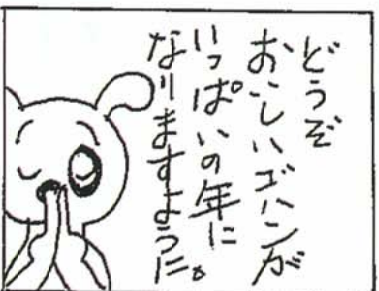 どうぞ
おいしいゴハンが
いっぱいの年に
なりますように。